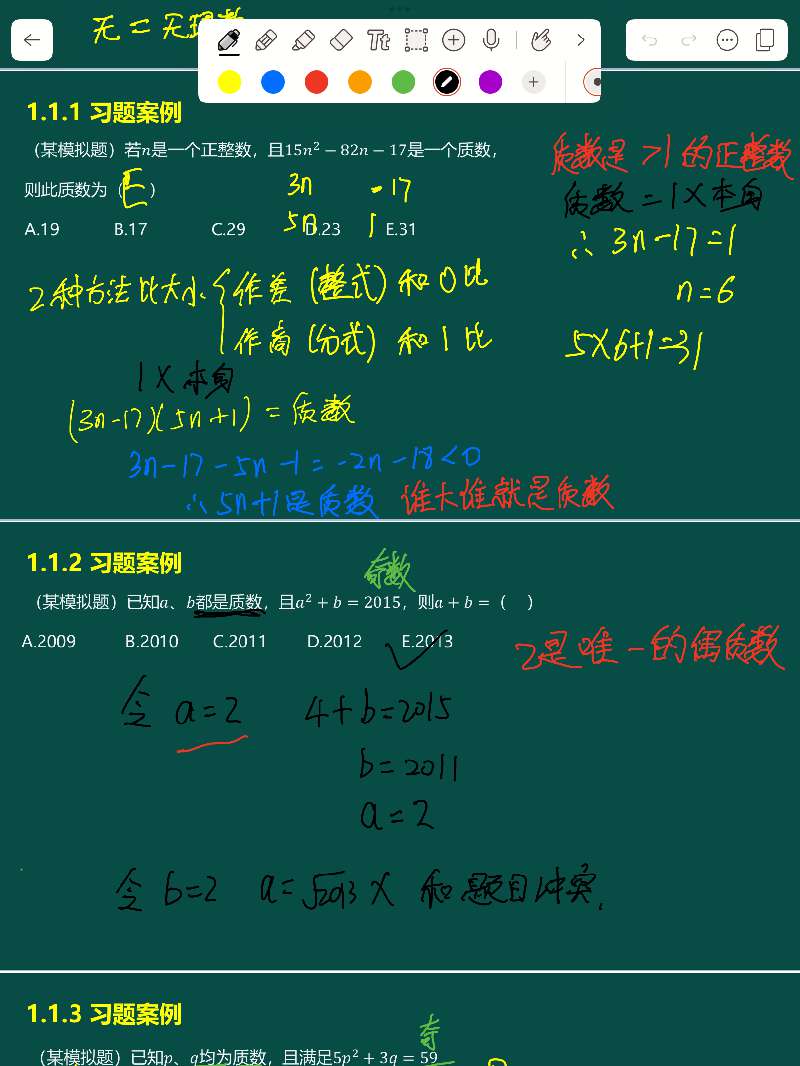 无=无理数
Tt
1.1.1 习题案例
（某模拟题）若n是一个正整数，且15n²−82n−17是一个质数，
则此质数为（E）
3n -17
5n 1
A.19 B.17 C.29 D.23 E.31
质数是>1的正整数
质数=1×本身
∴3n-17=1
n=6
5×6+1=31
2种方法比大小{作差(整式)和0比
作商(分式)和1比
1×本身
(3n-17)(5n+1)=质数
3n-17-5n-1=-2n-18<0
∴5n+1是质数 谁大谁就是质数
1.1.2 习题案例
奇数
（某模拟题）已知a、b都是质数，且a²+b=2015，则a+b=（ ）
A.2009 B.2010 C.2011 D.2012 E.2013
2是唯一的偶质数
令 a=2 4+b=2015
b=2011
a=2
令 b=2 a=√2013 × 和题目冲突.
1.1.3 习题案例
奇
（某模拟题）已知p、q均为质数，且满足5p²+3q=59